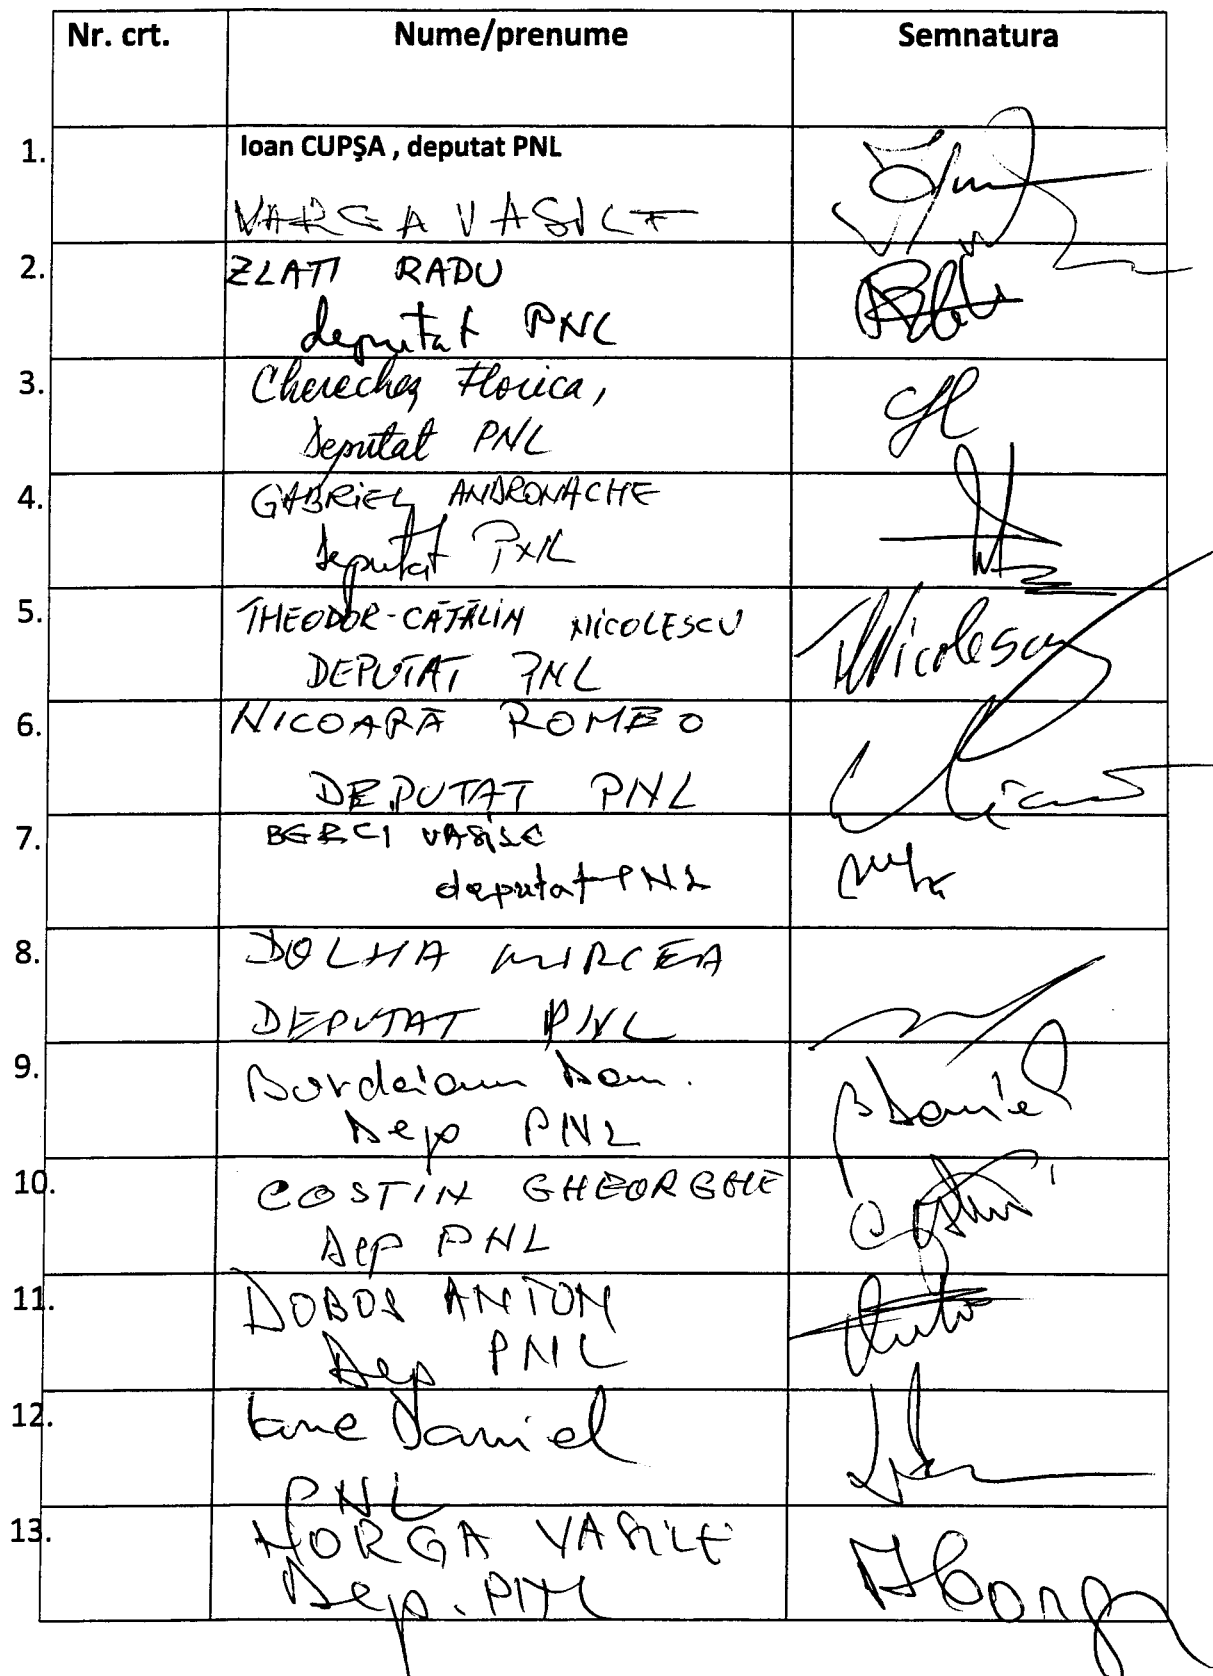 Nr. crt. Nume/prenume Semnatura
1. Ioan CUPŞA , deputat PNL
VARGA VASILE
2. ZLATI RADU
deputat PNL
3. Cherecheș Florica,
deputat PNL
4. GABRIEL ANDRONACHE
deputat PNL
5. THEODOR-CĂTĂLIN NICOLESCU TNicolescu
DEPUTAT PNL
6. NICOARĂ ROMEO
DEPUTAT PNL
7. BERCI VASILE
deputat PNL
8. DOLHA MIRCEA
DEPUTAT PNL
9. Bordeianu Dan.
Dep PNL
10. COSTIN GHEORGHE
Dep PNL
11. DOBOS ANTON
Dep PNL
12. Daniel
PNL
13. HORGA VASILE
Dep. PNL